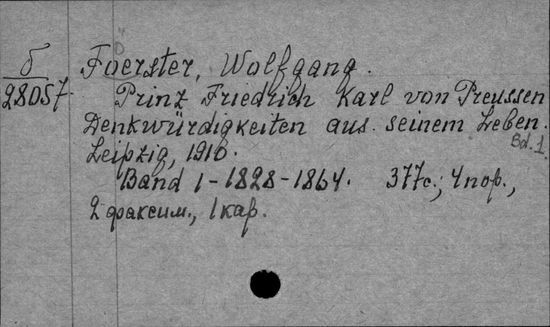 б
28057.
Foerster, Wolfgang.
Prinz Friedrich Karl von Preussen
Denkwürdigkeiten aus seinem Leben.
Bd. 1.
Leipzig, 1910.
Band 1 - 1828 - 1864. 377с.; 4 пор.,
2 факсим., 1 кар.